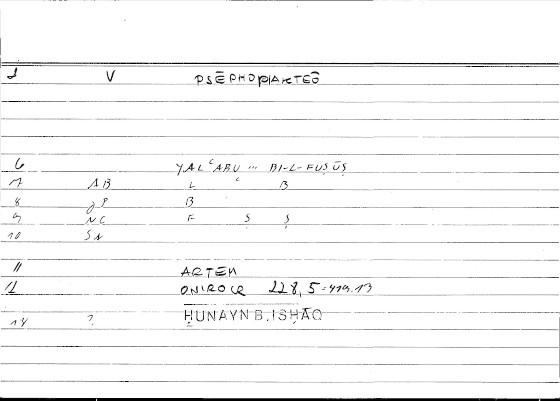 1 V PSĒPHOPAKTEŌ
6 YALʿABU ... BI-L-FUṢŪṢ
7 AB L ʿ B
8 JP B
9 NC F Ṣ Ṣ
10 SN
11 ARTEM
12 ONIROCR 228, 5 = 419.13
14 ? ḤUNAYN B. ISḤĀQ